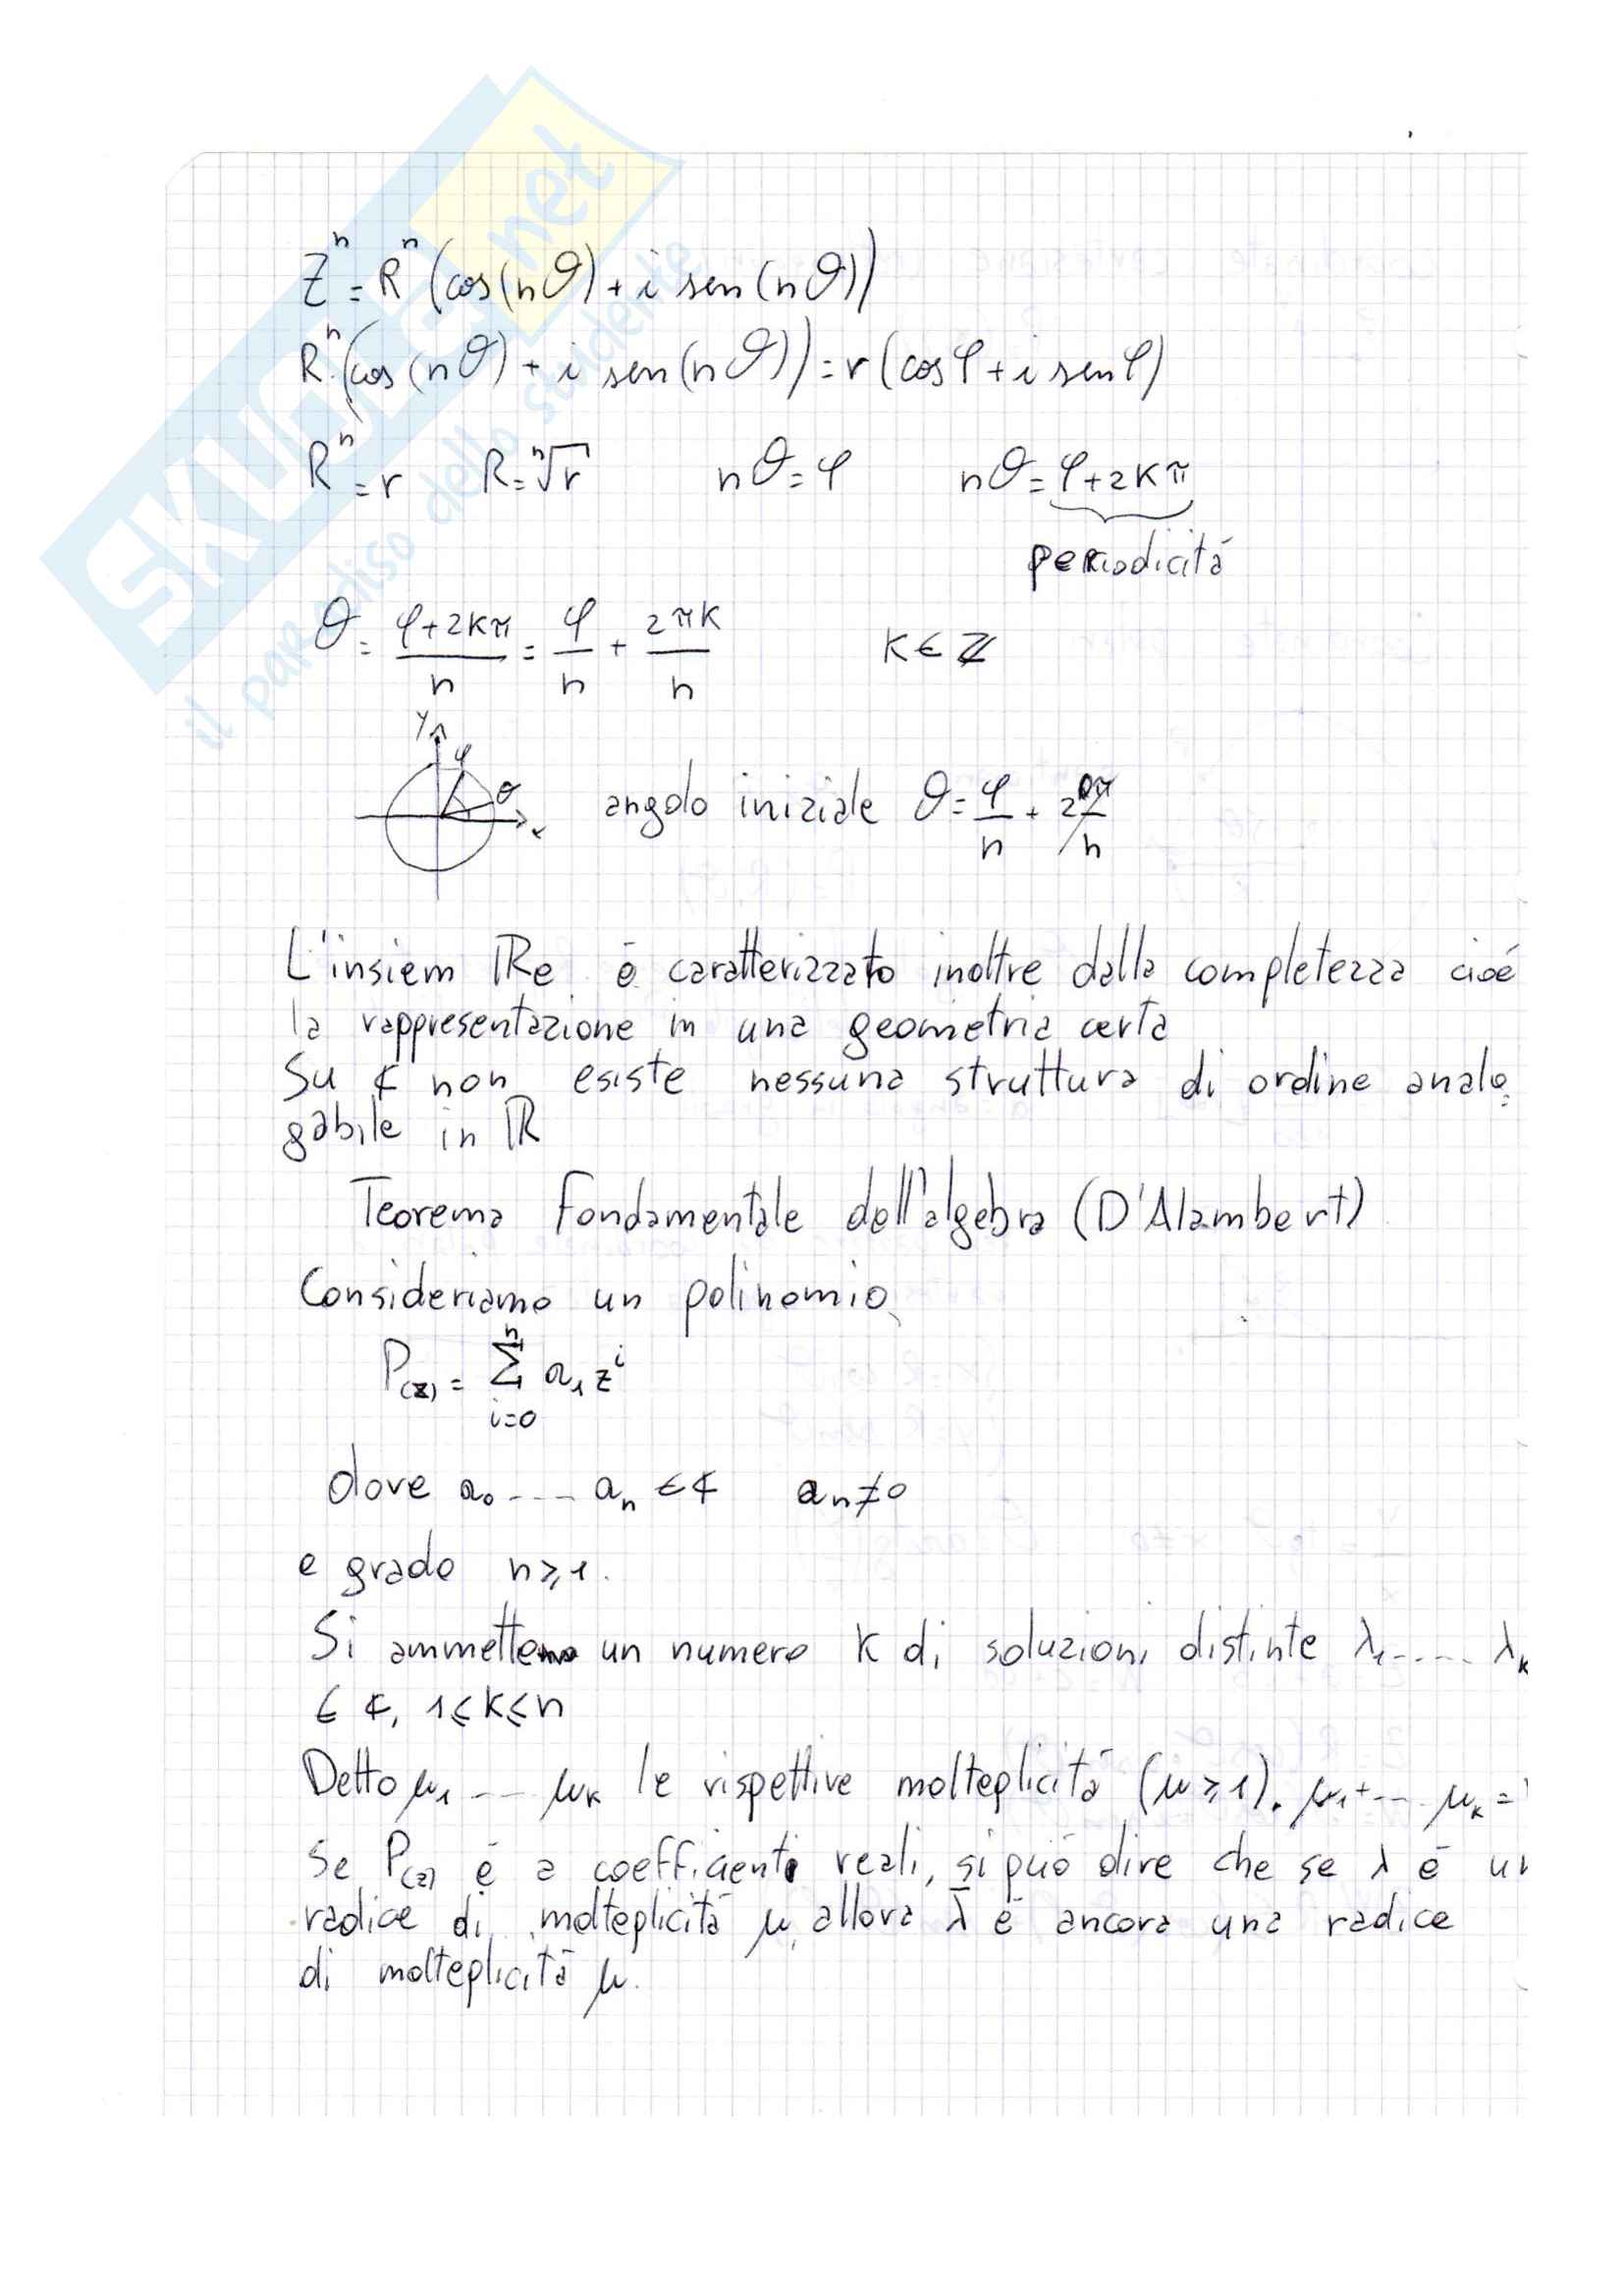 SKUOLA.net
il paradiso dello studente
Zⁿ = Rⁿ (cos(nϑ) + i sen(nϑ))
Rⁿ (cos(nϑ) + i sen(nϑ)) = r (cosφ + i senφ)
Rⁿ = r R = ⁿ√r nϑ = φ nϑ = φ+2Kπ
periodicitā
ϑ = (φ+2Kπ)/n = φ/n + 2πK/n K ∈ ℤ
y φ ϑ x
angolo iniziale ϑ = φ/n + 20π/n
L'insiem ℝe ē caratterizzato inoltre dalla completezza cioé
la rappresentazione in una geometria certa
Su ₵ non esiste nessuna struttura di ordine analo=
gabile in ℝ
Teorema fondamentale dell'algebra (D'Alambert)
Consideriamo un polinomio
P(z) = Σ_{i=0}^{n} a₁ zⁱ
dove a₀ .... aₙ ∈ ₵ aₙ ≠ 0
e grado n ≥ 1.
Si ammettono un numero K di soluzioni distinte λ₁ ..... λₖ
∈ ₵, 1 ≤ K ≤ n
Detto μ₁ .... μₖ le rispettive molteplicitā (μ ≥ 1). μ₁ + ... μₖ =
Se P(z) ē a coefficienti reali, si puō dire che se λ ē un
radice di molteplicitā μ, allora λ̄ ē ancora una radice
di molteplicitā μ.